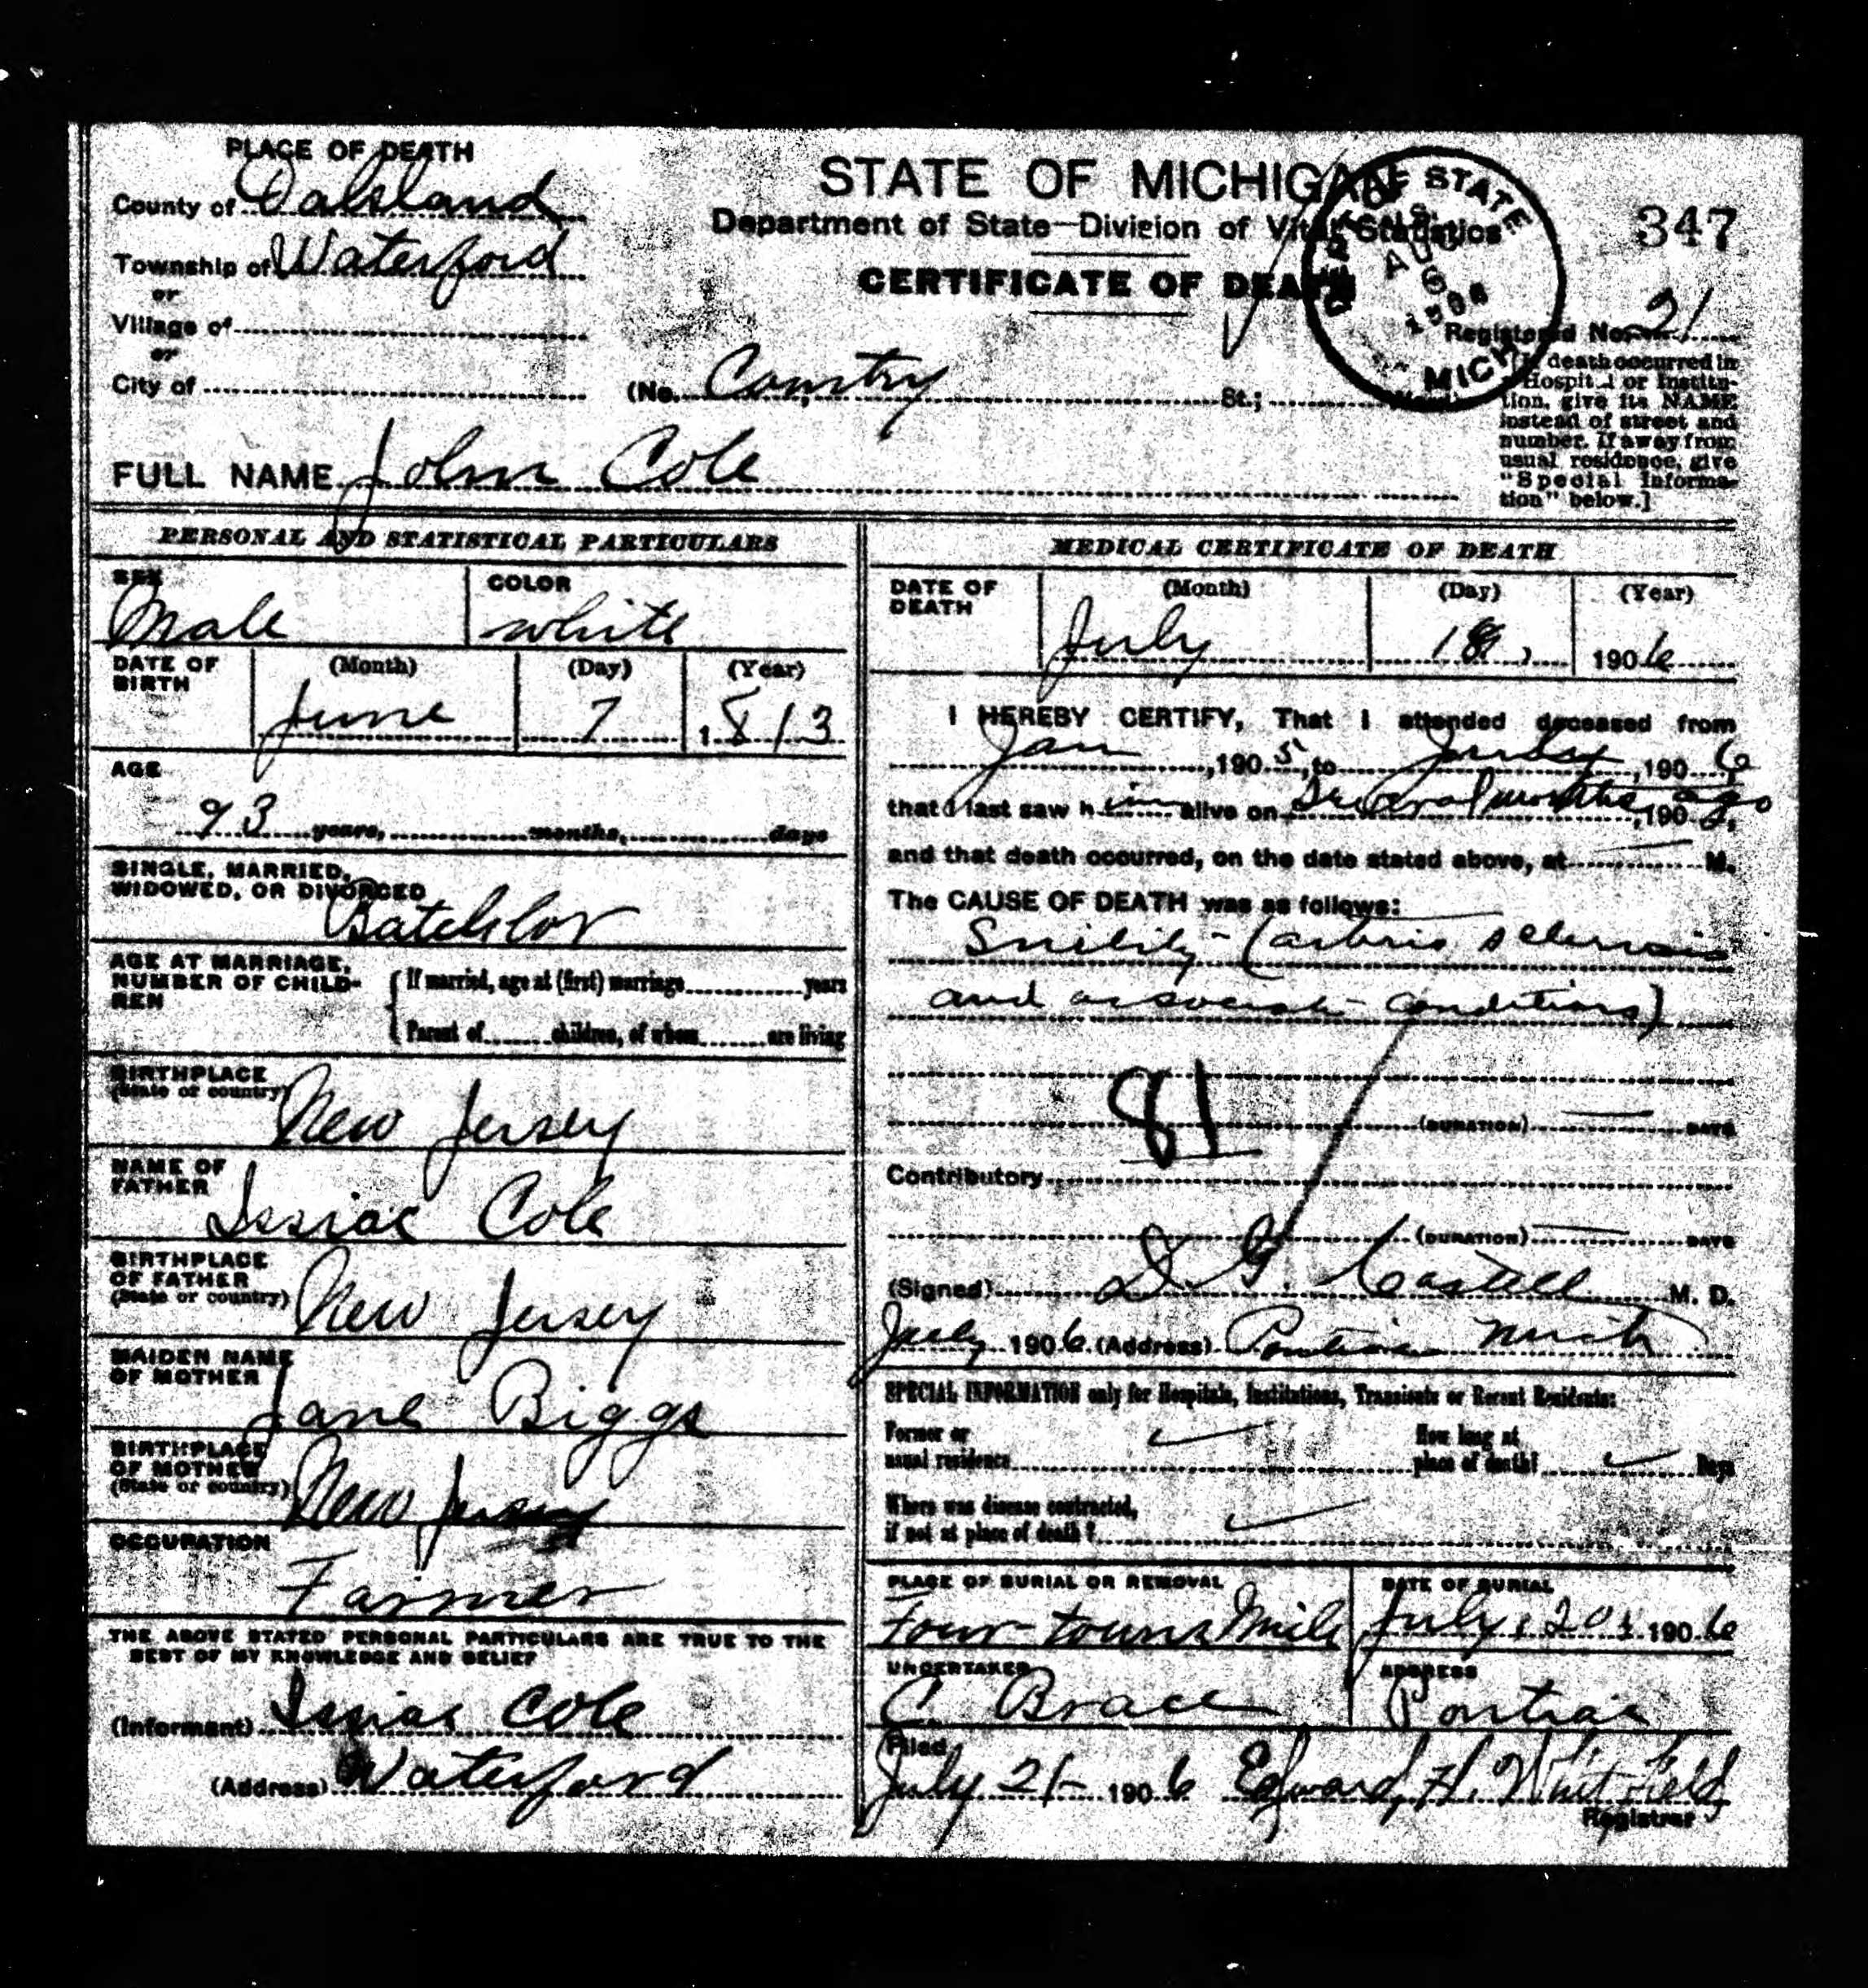 PLACE OF DEATH
County of Oakland
Township of Waterford
or
Village of
or
City of
STATE OF MICHIGAN
Department of State—Division of Vital Statistics
CERTIFICATE OF DEATH
OF STATE
AUG
6
1906
MICH
347
Registered No. 21
(No. Country St.;
death occurred in
Hospital or Institu-
tion, give its NAME
instead of street and
number. If away from
usual residence, give
"Special Informa-
tion" below.]
FULL NAME John Cole
PERSONAL AND STATISTICAL PARTICULARS
SEX
Male
COLOR
white
DATE OF BIRTH
(Month) (Day) (Year)
June 7 1813
AGE
93 years, months, days
SINGLE, MARRIED,
WIDOWED, OR DIVORCED
Batchlor
AGE AT MARRIAGE,
NUMBER OF CHILD-
REN
If married, age at (first) marriage years
Parent of children, of whom are living
BIRTHPLACE
(State or country)
New Jersey
NAME OF
FATHER
Issiac Cole
BIRTHPLACE
OF FATHER
(State or country)
New Jersey
MAIDEN NAME
OF MOTHER
Jane Biggs
BIRTHPLACE
OF MOTHER
(State or country)
New Jersey
OCCUPATION
Farmer
THE ABOVE STATED PERSONAL PARTICULARS ARE TRUE TO THE
BEST OF MY KNOWLEDGE AND BELIEF
(Informant) Issiac Cole
(Address) Waterford
MEDICAL CERTIFICATE OF DEATH
DATE OF
DEATH
(Month) (Day) (Year)
July 18, 1906
I HEREBY CERTIFY, That I attended deceased from
Jan, 1905, to July, 1906
that I last saw him alive on several months ago, 190
and that death occurred, on the date stated above, at M.
The CAUSE OF DEATH was as follows:
Senility - (arterio sclerosis
and associate conditions)
81
(DURATION) DAYS
Contributory
(DURATION) DAYS
(Signed) D. G. Castell M. D.
July 1906 (Address) Pontiac Mich
SPECIAL INFORMATION only for Hospitals, Institutions, Transients or Recent Residents:
Former or
usual residence
How long at
place of death? Days
Where was disease contracted,
if not at place of death?
PLACE OF BURIAL OR REMOVAL
Four towns Mich
DATE OF BURIAL
July, 20, 1906
UNDERTAKER
C. Brace
ADDRESS
Pontiac
Filed
July 21 1906 Edward H. Whitfield
Registrar